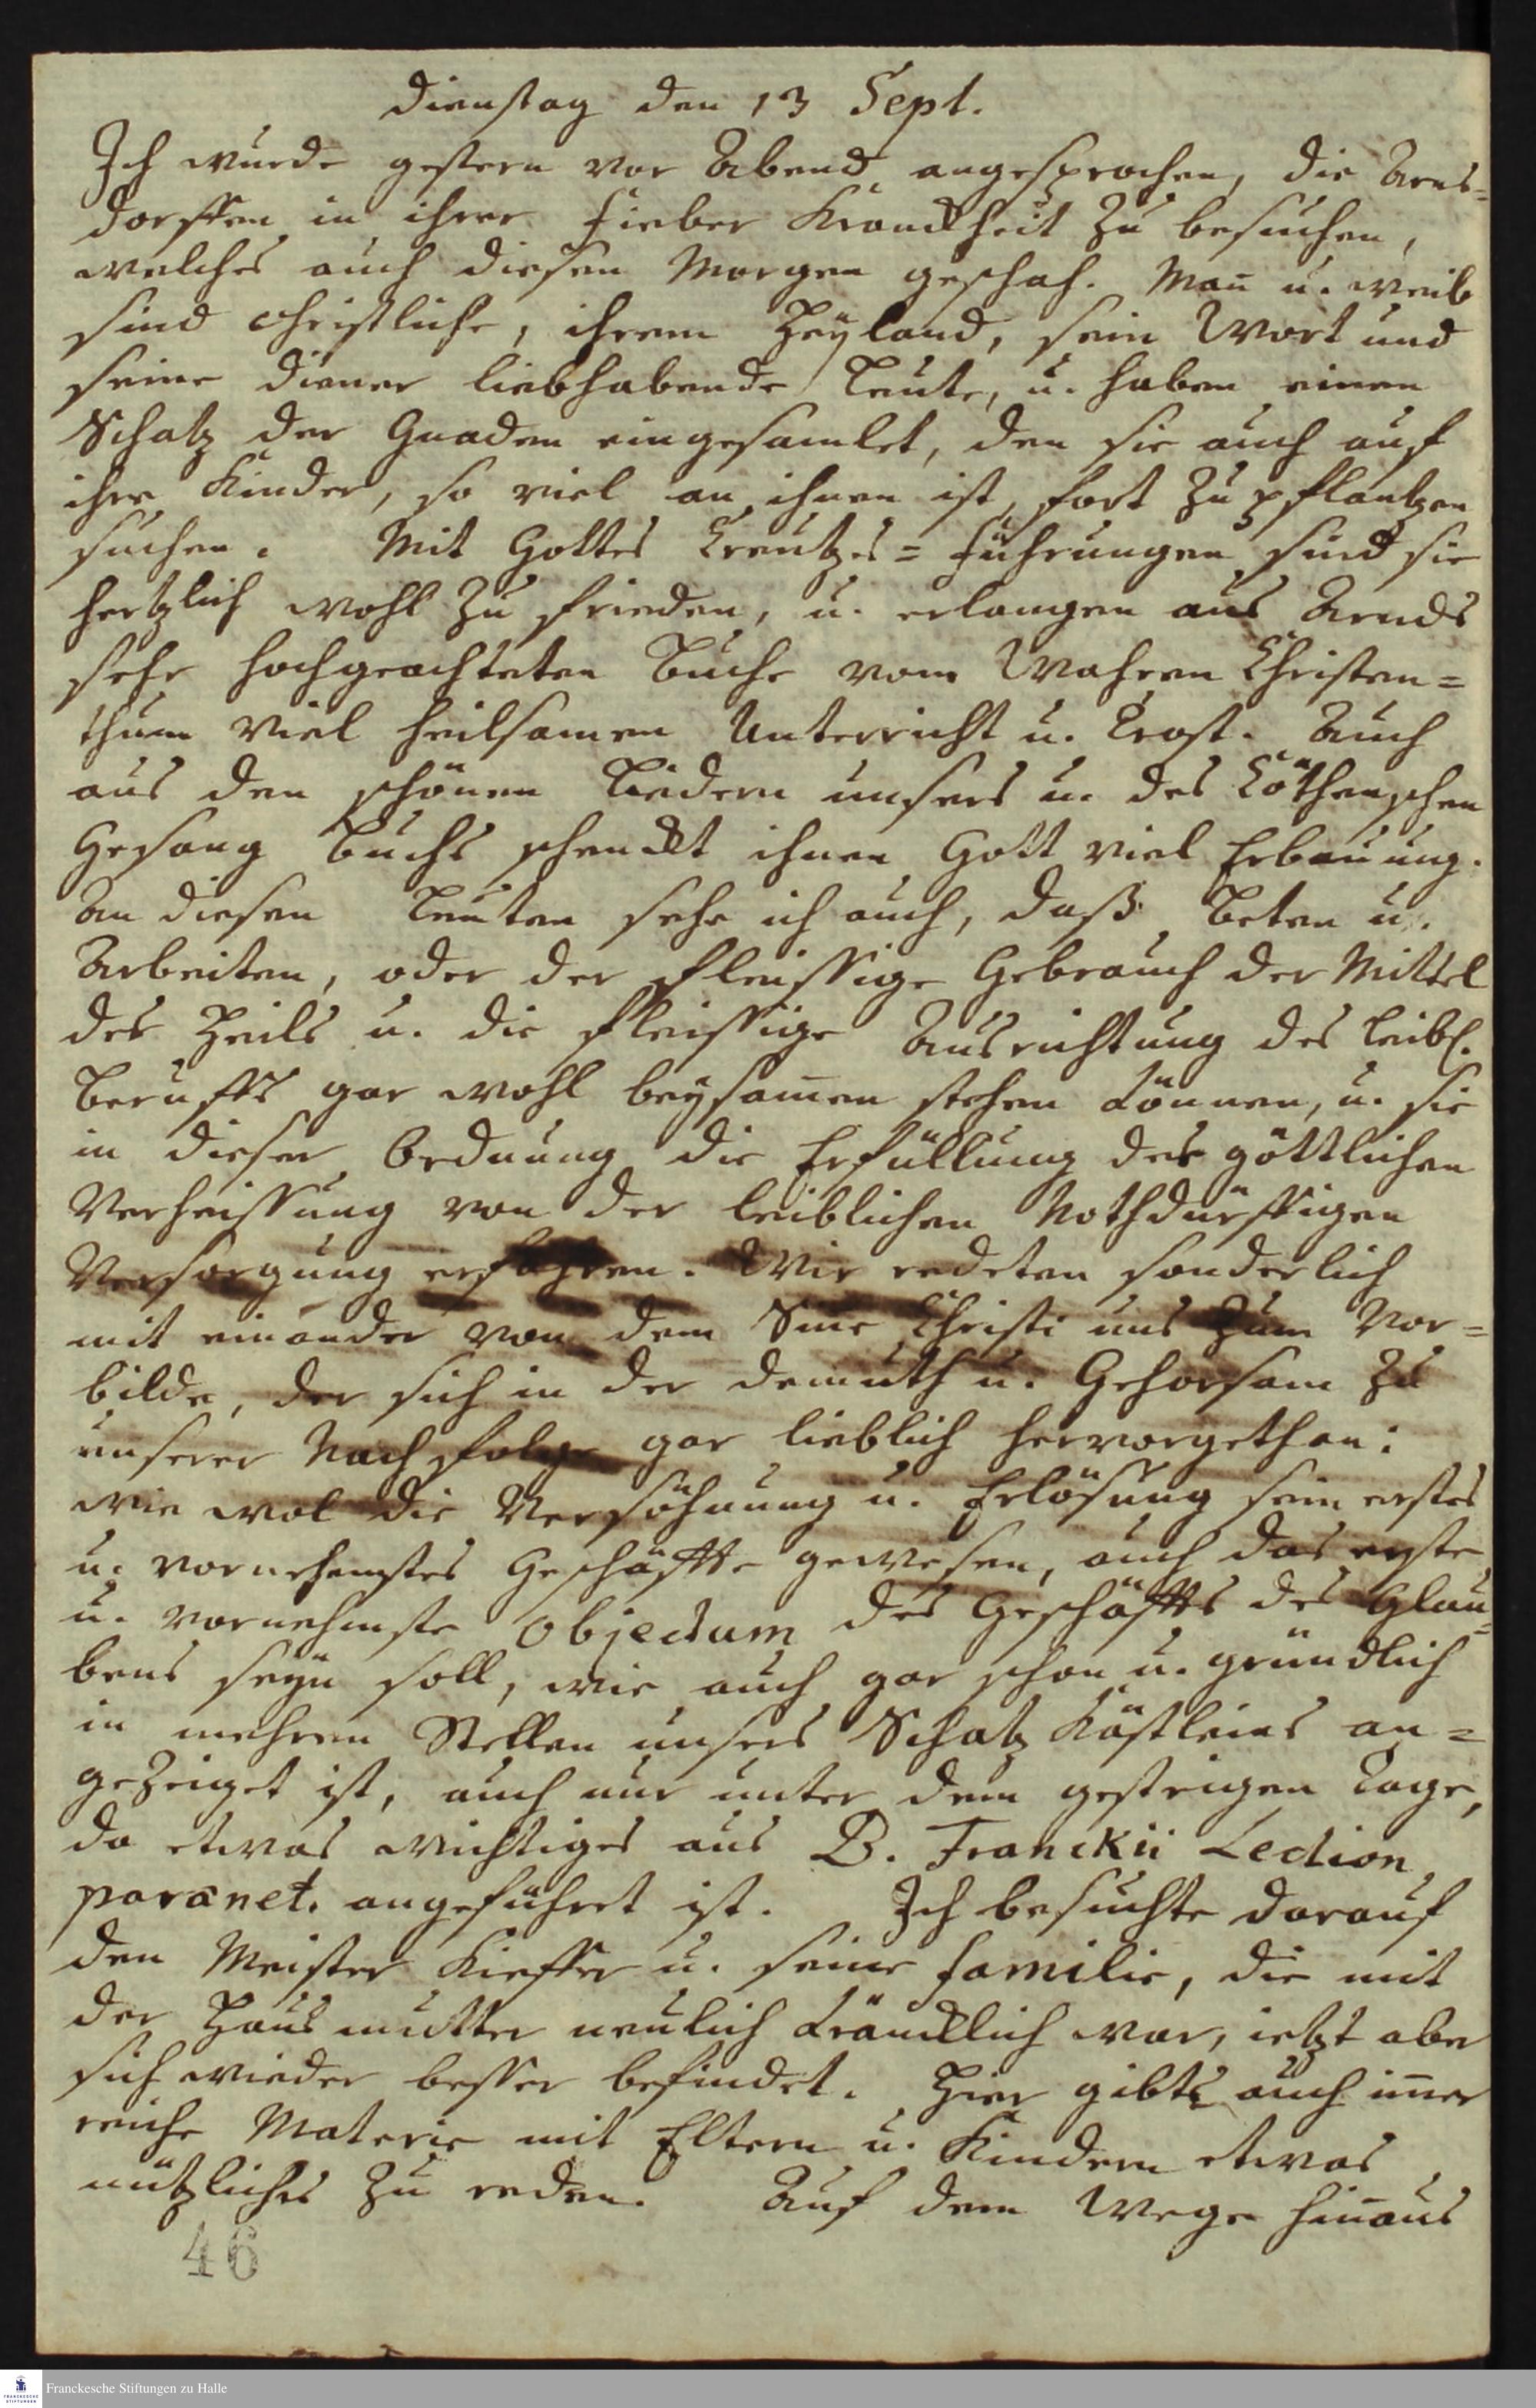 Dienstag den 13 Sept.
Ich wurde gestern vor Abend angesprochen, die Arns-
dorffen in ihrer Fieber Kranckheit zu besuchen,
welches auch diesen Morgen geschah. Mañ u. Weib
sind Christliche, ihrem Heyland, sein Wort und
seine Diener liebhabende Leute, u. haben einen
Schatz der Gnaden eingesamlet, den sie auch auf
ihre Kinder, so viel an ihnen ist, fort zu pflantzen
suchen. Mit Gottes Creutzes= Führungen sind sie
hertzlich wohl zu frieden, u. erlangen aus Arnds
sehr hochgeachteten Buche vom Wahren Christen=
thum viel heilsamen Unterricht u. Trost. Auch
aus den schönen Liedern unsers u. des Cöthenschen
Gesang Buchs schenckt ihnen Gott viel Erbauung.
An diesen Leuten sehe ich auch, daß Beten u.
Arbeiten, oder der fleissige Gebrauch der Mittel
des Heils u. die fleissige Ausrichtung des leibl.
Beruffs gar wohl beysam̃en stehen können, u. sie
in dieser Ordnung die Erfüllung der göttlichen
Verheissung von der leiblichen Nothdürfftigen
Versorgung erfahren. Wir redeten sonderlich
mit einander von dem Sinne Christi uns zum Vor=
bilde, der sich in der Demuth u. Gehorsam zu
unserer Nachfolge gar lieblich hervorgethan:
wie wol die Versöhnung u. Erlösung sein erstes
u. vornehmstes Geschäffte gewesen, auch das erste
u. vornehmste Objectum des Geschäffts des Glau-
bens seyn soll, wie auch gar schon u. gründlich
in mehren Stellen unsers Schatz Kästleins an=
gezeiget ist, auch nur unter dem gestrigen Tage,
da etwas wichtiges aus B. Franckii Lection.
parænet. angeführet ist. Ich besuchte darauf
den Meister Kieffer u. seine Familie, die mit
der Hausmutter neulich kräncklich war, ietzt aber
sich wieder besser befindet. Hier gibts auch im̃er
reiche Materie mit Eltern u. Kindern etwas
nützliches zu reden. Auf dem Wege hinaus
46
Franckesche Stiftungen zu Halle